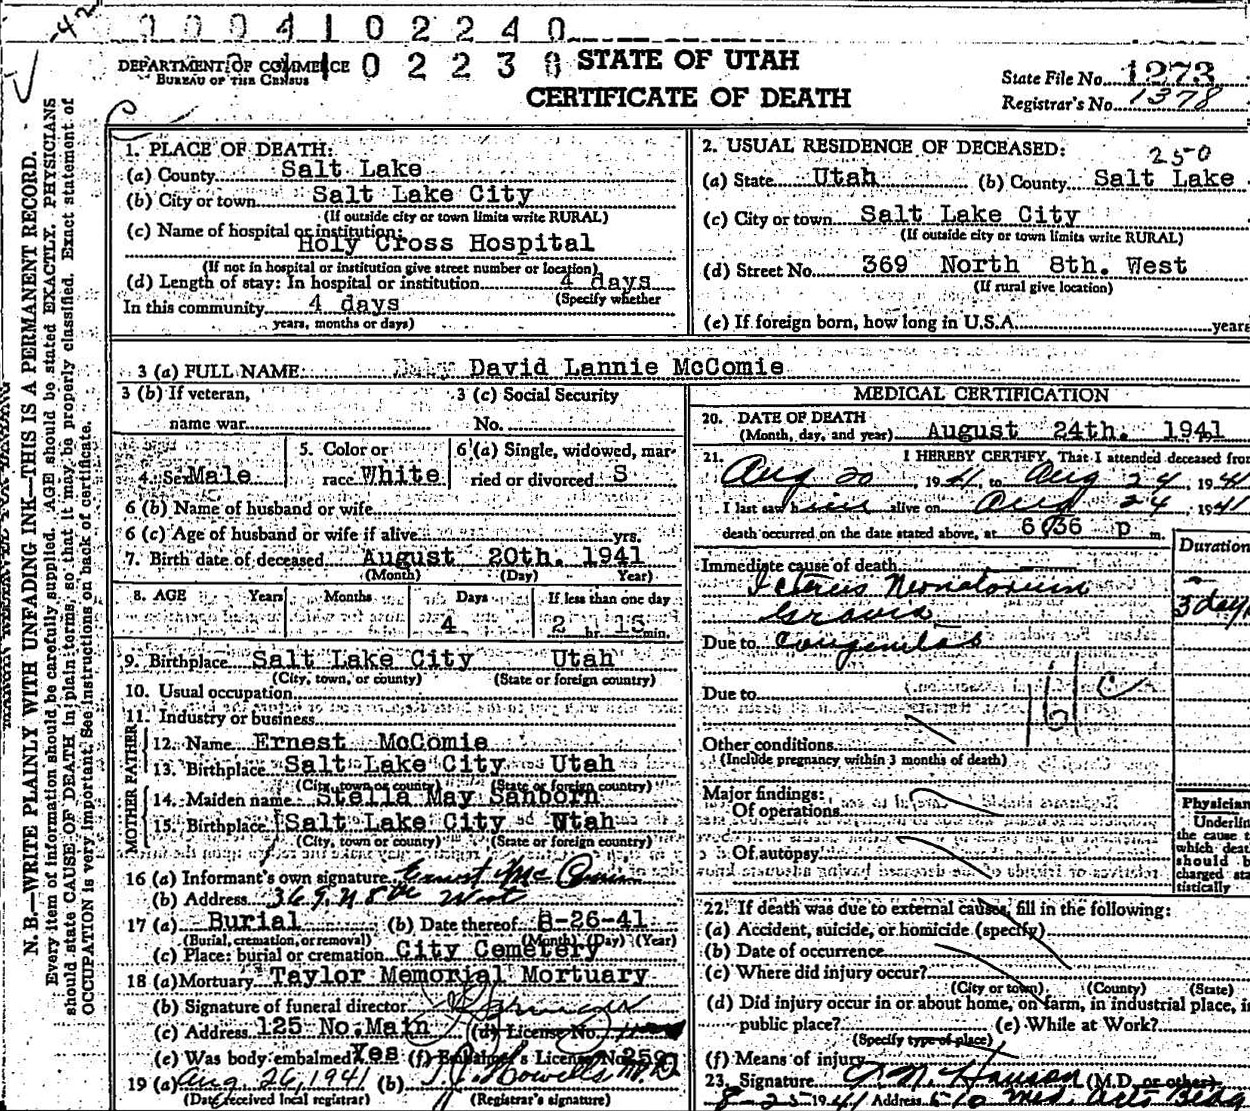 -42
0 0 0 4 1 0 2 2 4 0
DEPARTMENT OF COMMERCE
BUREAU OF THE CENSUS
0 2 2 3 0
STATE OF UTAH
CERTIFICATE OF DEATH
State File No. 1273
Registrar's No. 1378
N. B.—WRITE PLAINLY WITH UNFADING INK—THIS IS A PERMANENT RECORD.
Every item of information should be carefully supplied. AGE should be stated EXACTLY. PHYSICIANS
should state CAUSE OF DEATH in plain terms, so that it may be properly classified. Exact statement of
OCCUPATION is very important. See instructions on back of certificate.
1. PLACE OF DEATH:
(a) County Salt Lake
(b) City or town Salt Lake City
(If outside city or town limits write RURAL)
(c) Name of hospital or institution:
Holy Cross Hospital
(If not in hospital or institution give street number or location)
(d) Length of stay: In hospital or institution 4 days
(Specify whether
In this community 4 days
years, months or days)
2. USUAL RESIDENCE OF DECEASED:
250
(a) State Utah (b) County Salt Lake
(c) City or town Salt Lake City
(If outside city or town limits write RURAL)
(d) Street No. 369 North 8th. West
(If rural give location)
(e) If foreign born, how long in U.S.A. years
3 (a) FULL NAME: Baby David Lannie McComie
3 (b) If veteran,
name war
3 (c) Social Security
No.
4. Sex Male
5. Color or
race White
6 (a) Single, widowed, mar-
ried or divorced S
6 (b) Name of husband or wife
6 (c) Age of husband or wife if alive yrs.
7. Birth date of deceased August 20th. 1941
(Month) (Day) Year)
8. AGE Years Months Days If less than one day
4 2 hr. 15 min.
9. Birthplace Salt Lake City Utah
(City, town, or county) (State or foreign country)
10. Usual occupation
11. Industry or business
FATHER
12. Name Ernest McComie
13. Birthplace Salt Lake City Utah
(City, town or county) (State or foreign country)
MOTHER
14. Maiden name Stella May Sanborn
15. Birthplace Salt Lake City Utah
(City, town or county) (State or foreign country)
16 (a) Informant's own signature Ernest McComie
(b) Address 369 N 8th West
17 (a) Burial (b) Date thereof 8-26-41
(Burial, cremation, or removal) (Month) (Day) (Year)
(c) Place: burial or cremation City Cemetery
18 (a) Mortuary Taylor Memorial Mortuary
(b) Signature of funeral director
(c) Address 125 No. Main (d) License No.
(e) Was body embalmed? Yes (f) Embalmer's License No. 259
19 (a) Aug. 26, 1941 (b) T. J. Howells M.D
(Date received local registrar) (Registrar's signature)
MEDICAL CERTIFICATION
20. DATE OF DEATH
(Month, day, and year) August 24th. 1941
21. I HEREBY CERTIFY, That I attended deceased from
Aug 20, 1941 to Aug 24, 1941
I last saw him alive on Aug 24, 1941
death occurred on the date stated above, at 6:36 p m.
Duration
Immediate cause of death
Icterus Neonatorum
Gravis
3 days
Due to Congenital
Due to
161c
Other conditions
(Include pregnancy within 3 months of death)
Major findings:
Of operations
Of autopsy
Physician
Underlin
the cause t
which deat
should b
charged sta
tistically
22. If death was due to external causes, fill in the following:
(a) Accident, suicide, or homicide (specify)
(b) Date of occurrence
(c) Where did injury occur?
(City or town) (County) (State)
(d) Did injury occur in or about home, on farm, in industrial place, in
public place? (e) While at Work?
(Specify type of place)
(f) Means of injury
23. Signature (M.D. or other)
8-25 1941 Address 510 Med. Arts Bldg